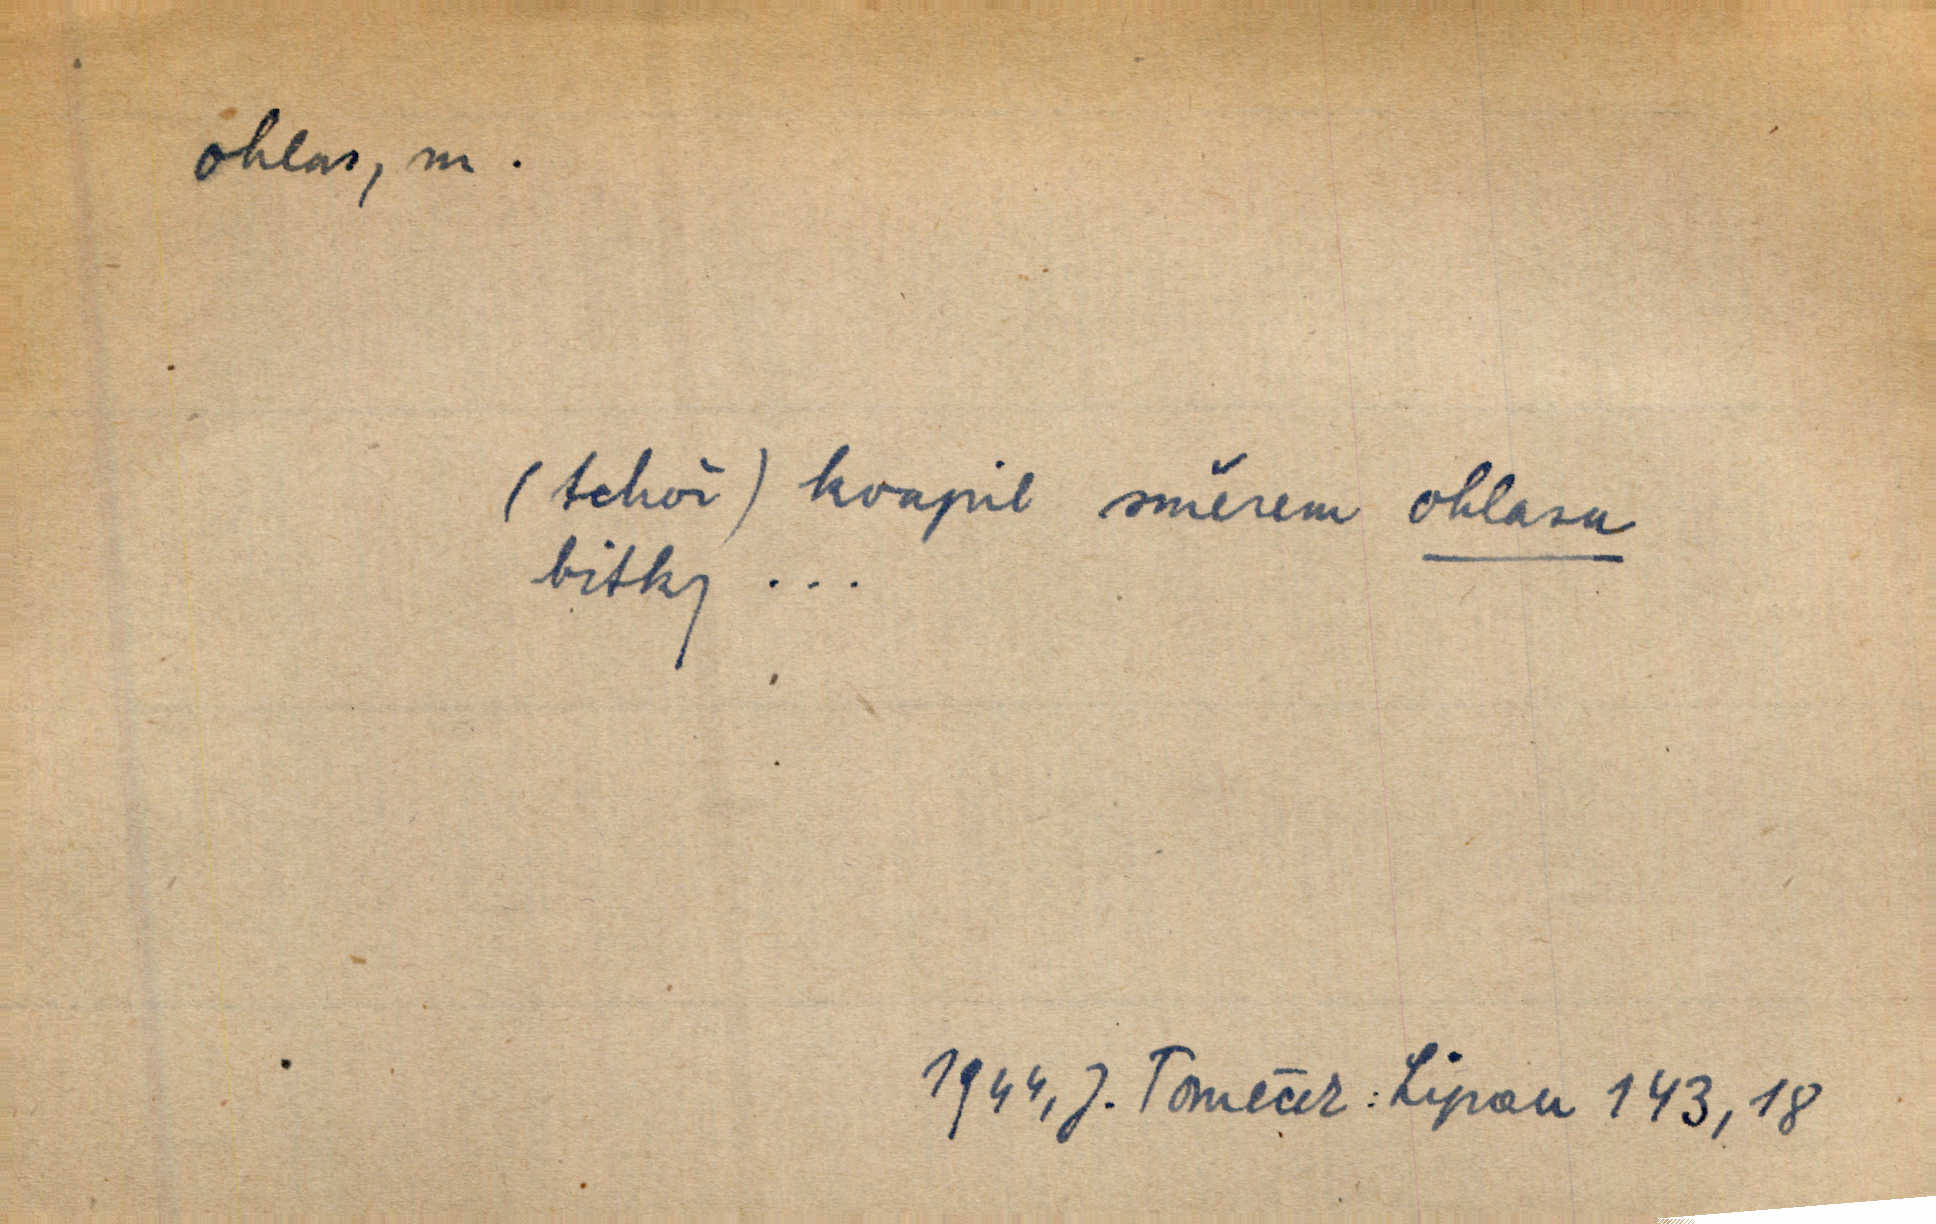 ohlas, m.
(tchoř) kvapil směrem ohlasu
bitky ...
1944, J. Tomeček: Lipan 143, 18